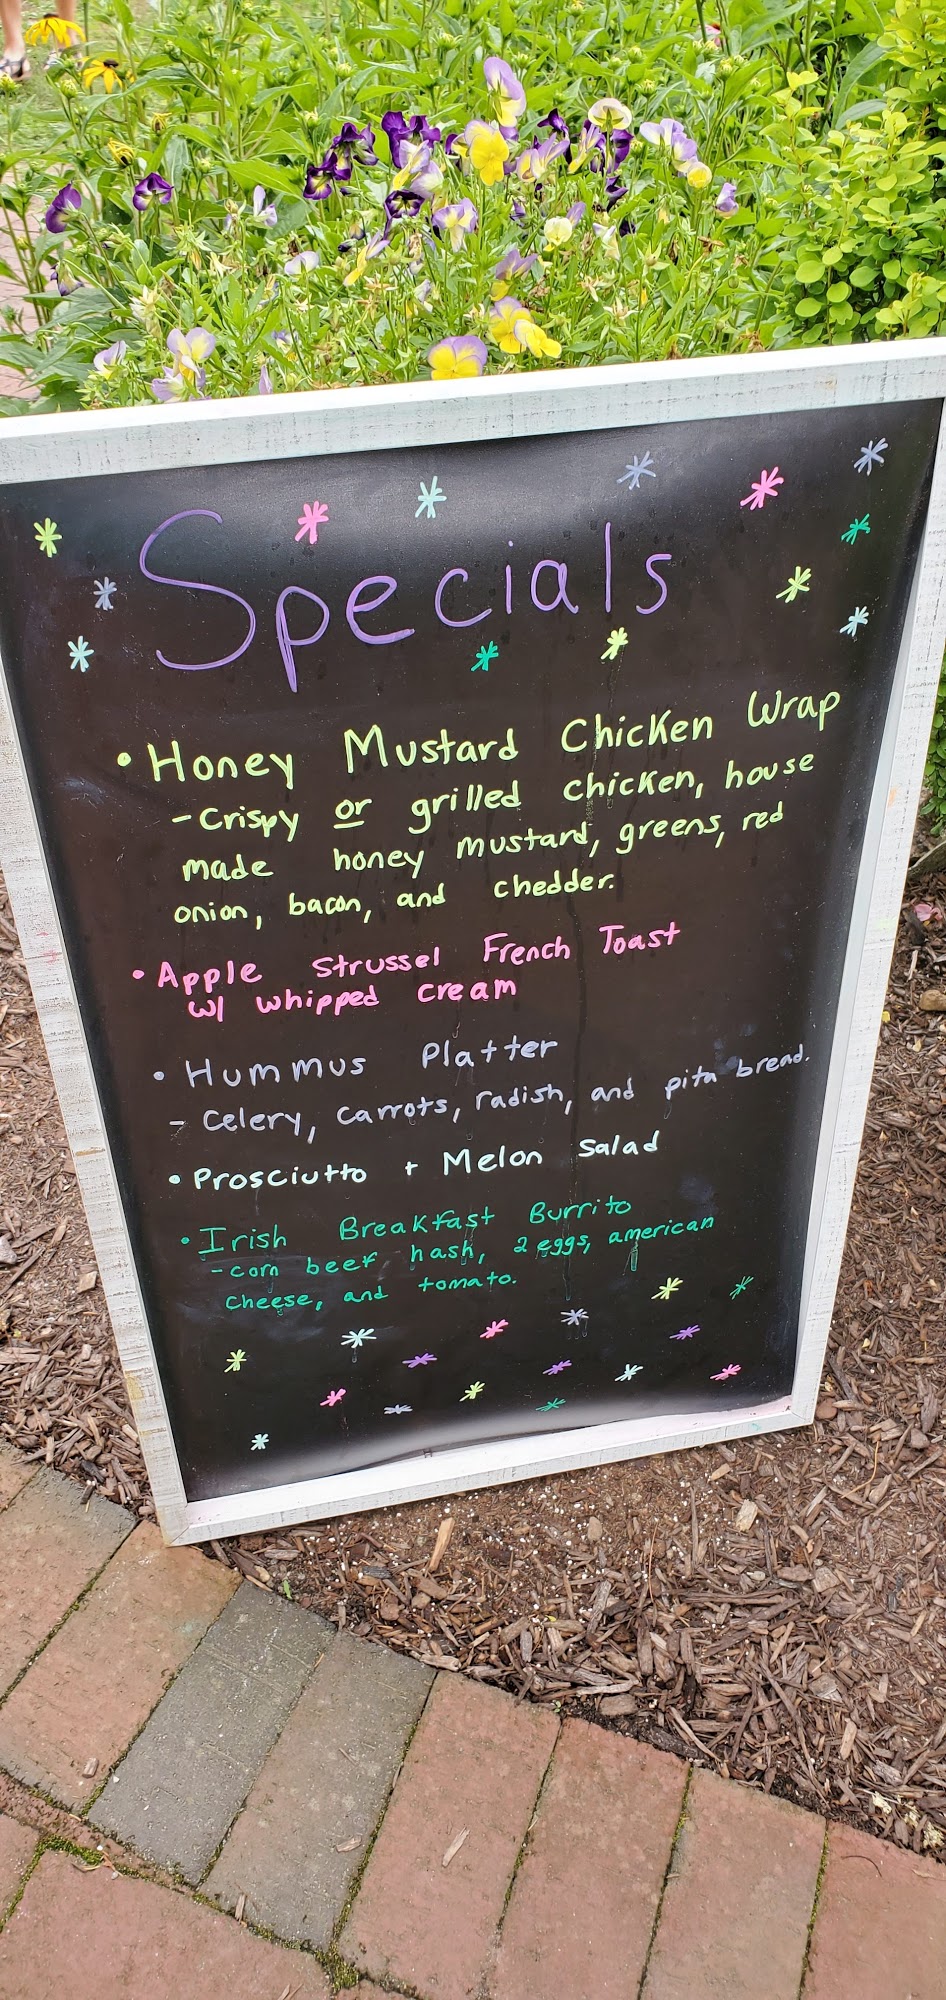 Specials
• Honey Mustard Chicken Wrap
- Crispy or grilled chicken, house
made honey mustard, greens, red
onion, bacon, and chedder.
• Apple Strussel French Toast
w/ whipped cream
• Hummus Platter
- Celery, carrots, radish, and pita bread.
• Prosciutto + Melon Salad
• Irish Breakfast Burrito
- corn beef hash, 2 eggs, american
cheese, and tomato.